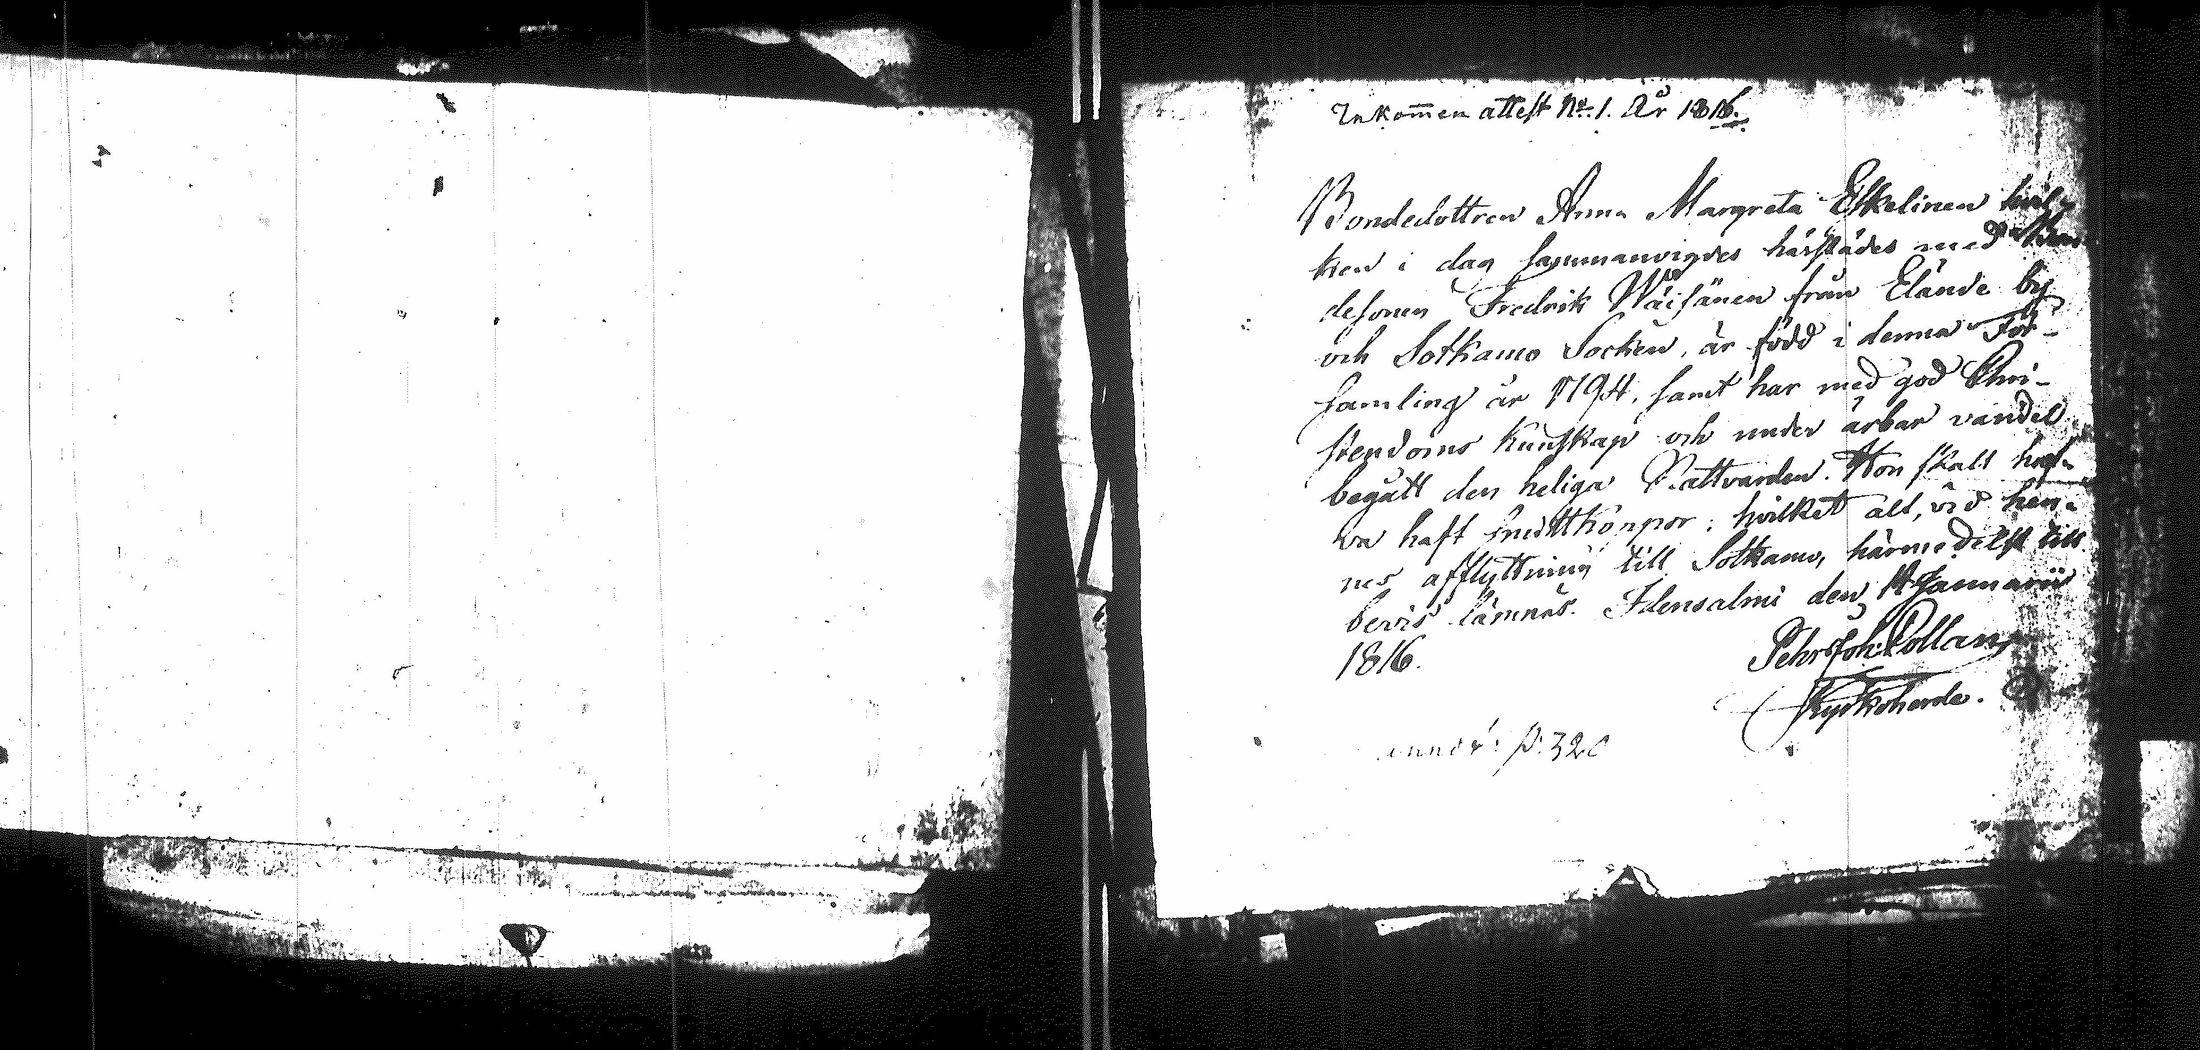 Inkommen attest No. 1. År 1816.
Bondedottren Anna Margreta Eskelinen hvil-
ken i dag sammanvigdes härstädes med Bon-
desonen Fredrik Wäisänen från Elände by
och Sotkamo Socken, är född i denna För-
samling år 1794, samt har med god Chri-
stendoms Kunskap och under ärbar vandel
begått den heliga Nattvarden. Hon skall haf-
va haft Smittkoppor; hvilket alt, vid hen-
nes afflyttning till Sotkamo, härmedelst till
bevis lämnas. Idensalmi den Januarii
1816.
Pehr Joh: Collan
Kyrkoherde.
p. 320